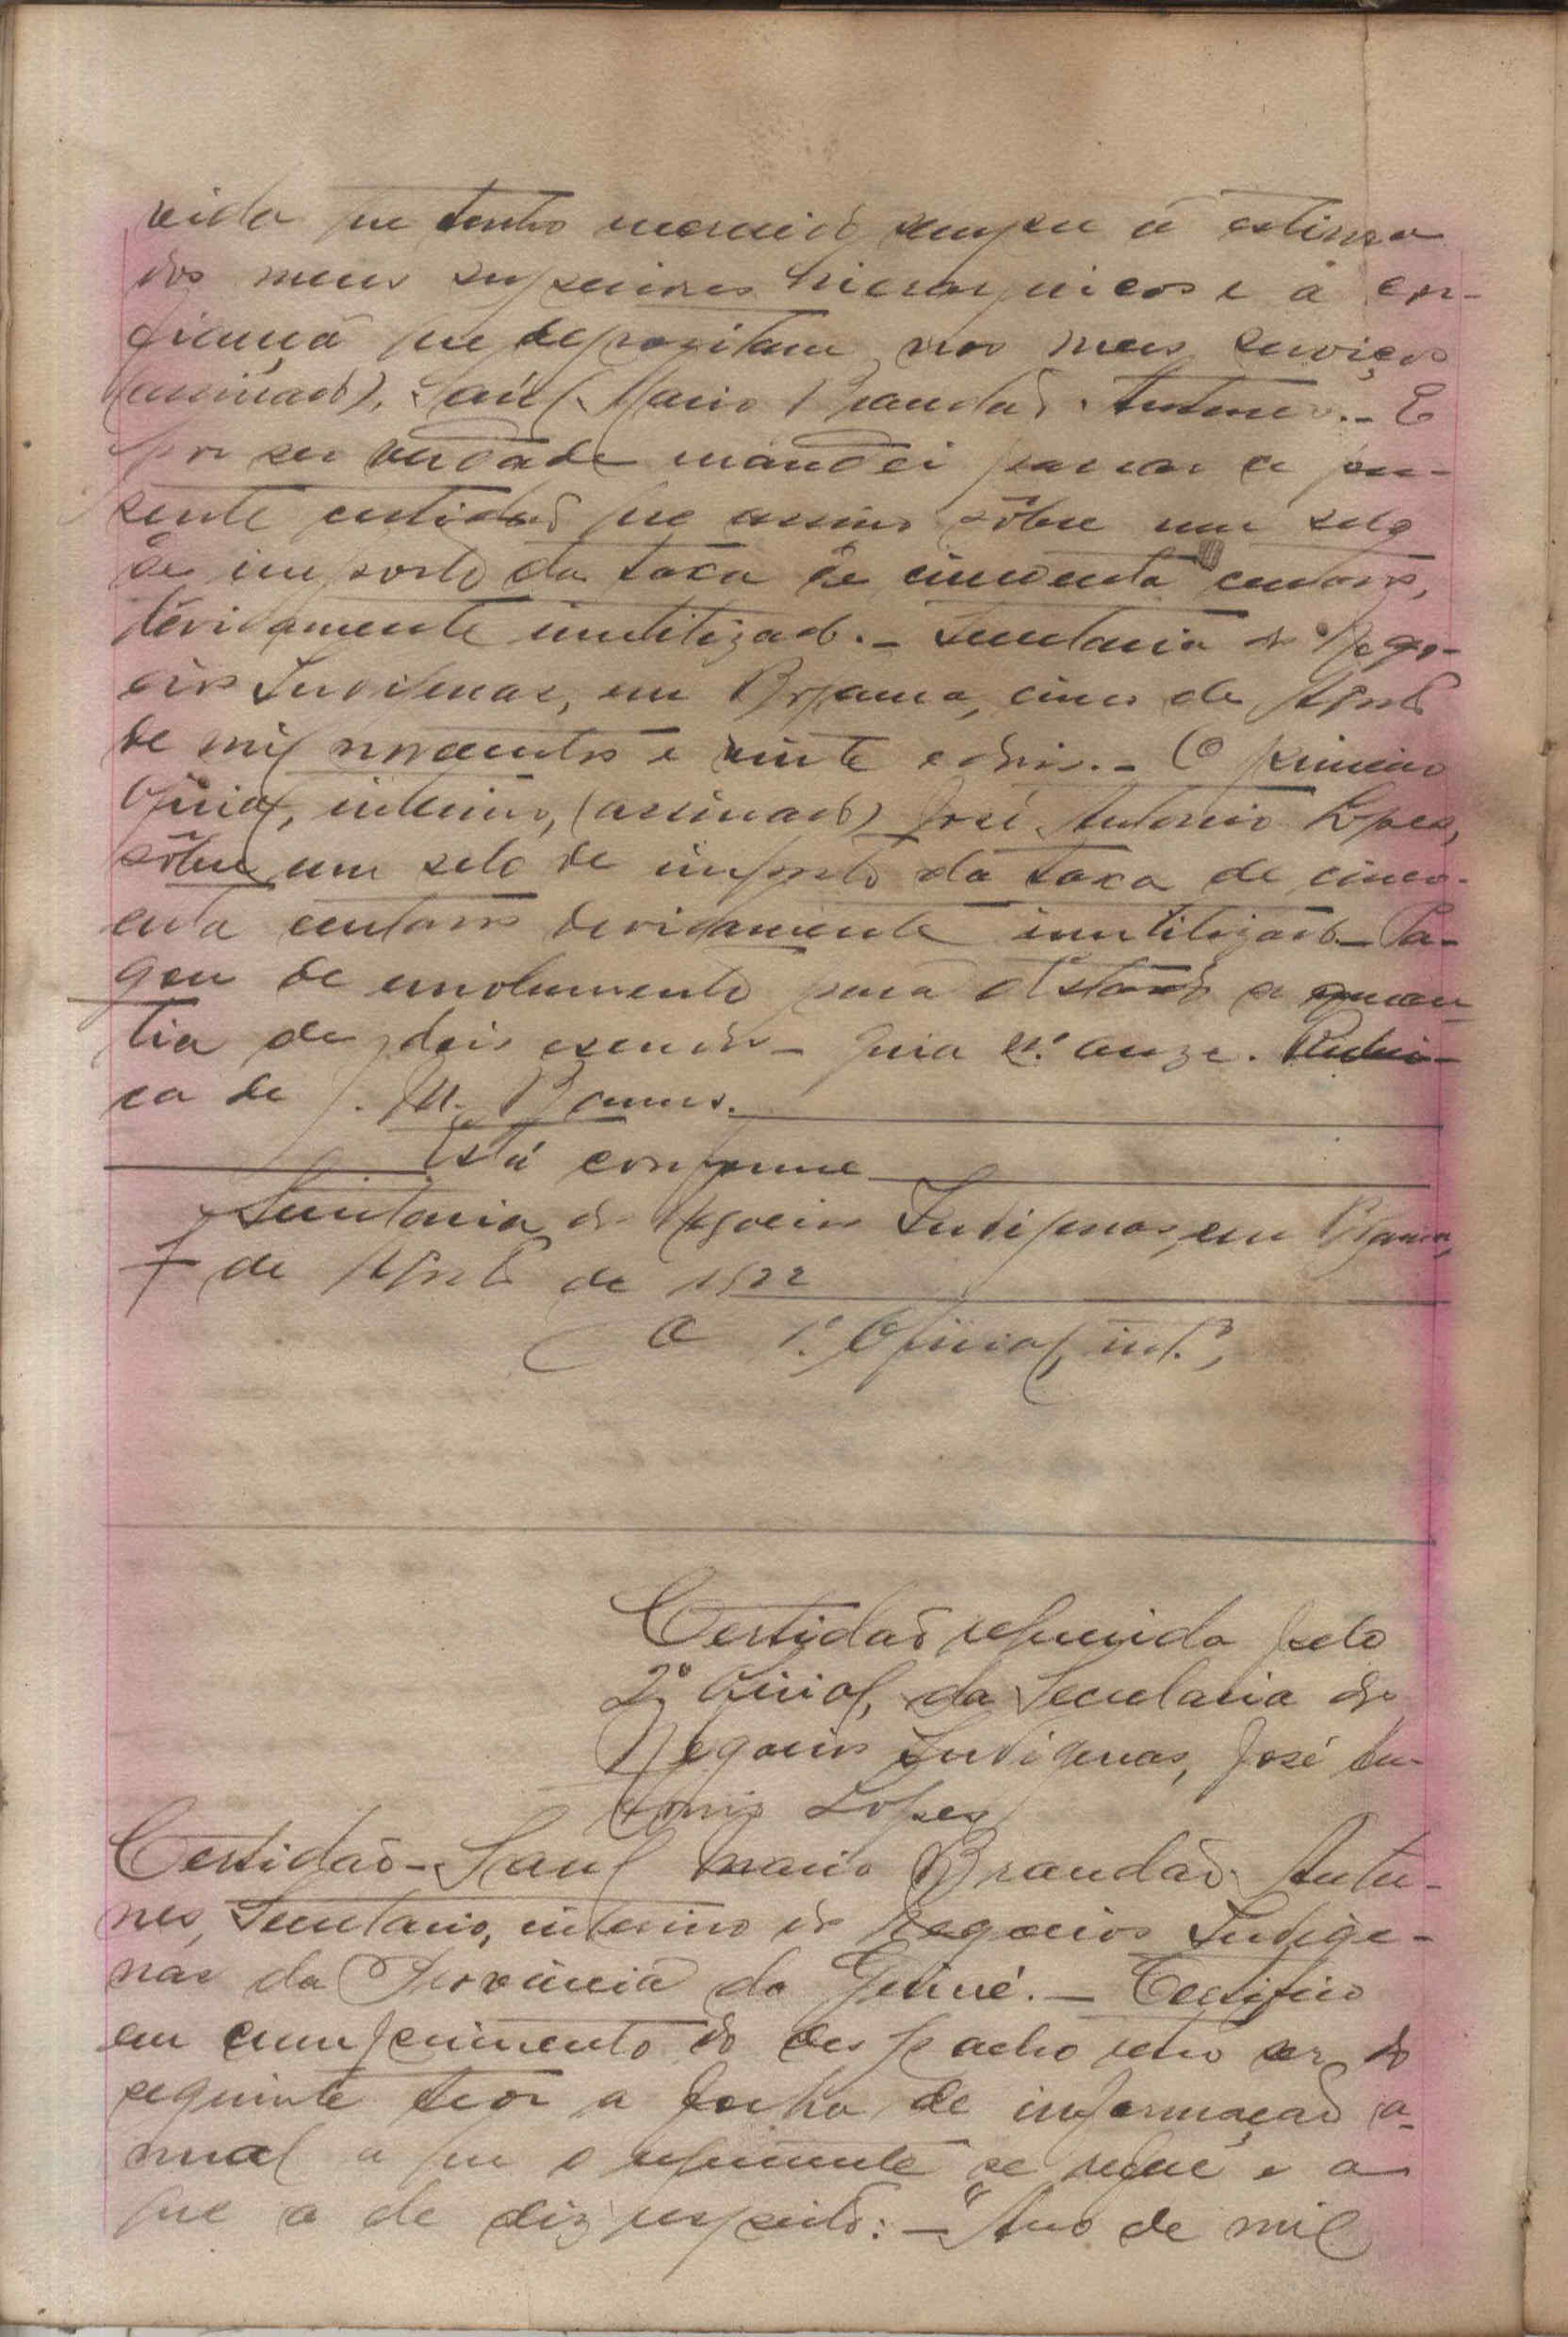 vida que tenho merecido sempre a estima
dos meus superiores hierarquicos e a con-
fiança que depositam nos meus serviços
(assinado), Saúl Mario Brandão Antunes.- E
por ser verdade mandei passar a pre-
sente certidão que assino sôbre um selo
de imposto da taxa de cincoenta centavos,
devidamente inutilizado.- Secretaria dos Nego-
cios Indigenas, em Bolama, cinco de Agosto
de mil novecentos e vinte e dois.- O primeiro
Oficial, interino, (assinado) José Antonio Lopes,
sôbre um selo de imposto da taxa de cinco-
enta centavos devidamente inutilizado- Pa-
gou de emolumento para o Estado a quan-
tia de dois escudos- guia n.º onze. Rubri-
ca de J. M. Barros.
Está conforme
Secretaria dos Negocios Indigenas, em Bolama,
7 de Agosto de 1922
O 1.º Oficial, int.º,
Certidão requerida pelo
2º Oficial, da Secretaria dos
Negocios Indigenas, José An-
tonio Lopes
Certidão- Saul Mario Brandão Antu-
nes, Secretario, interino dos Negocios Indige-
nas da Provincia da Guiné.- Certifico
em cumprimento do despacho retro ser do
seguinte teor a folha de informação a-
nual a que o requerente se refere e a
que a ele diz respeito:- "Ano de mil